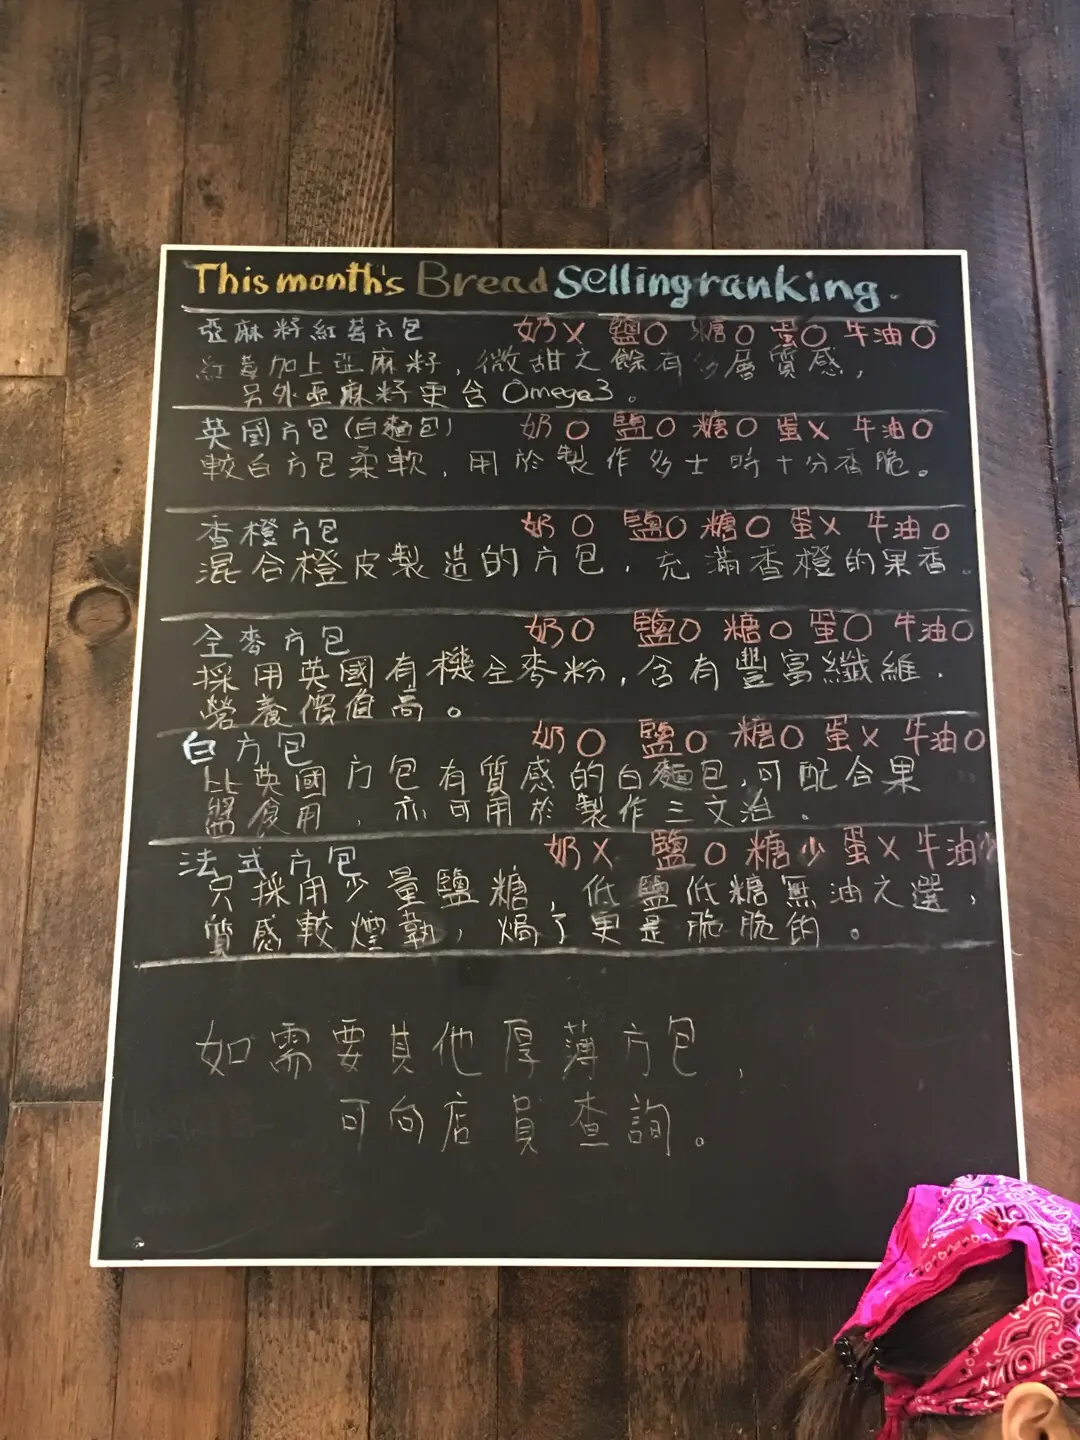 This month's Bread Selling ranking.
亞麻籽紅莓方包 奶X 鹽O 糖O 蛋O 牛油O
紅莓加上亞麻籽，微甜之餘有多層質感，
另外亞麻籽更含Omega3。
英國方包(白麵包) 奶O 鹽O 糖O 蛋X 牛油O
較白方包柔軟，用於製作多士時十分香脆。
香橙方包 奶O 鹽O 糖O 蛋X 牛油O
混合橙皮製造的方包，充滿香橙的果香。
全麥方包 奶O 鹽O 糖O 蛋O 牛油O
採用英國有機全麥粉，含有豐富纖維，
營養價值高。
白方包 奶O 鹽O 糖O 蛋X 牛油O
比英國方包有質感的白麵包，可配合果
醬食用，亦可用於製作三文治。
法式方包 奶X 鹽O 糖少 蛋X 牛油少
只採用少量鹽糖，低鹽低糖無油之選，
質感較煙韌，焗了更是脆脆的。
如需要其他厚薄方包，
可向店員查詢。